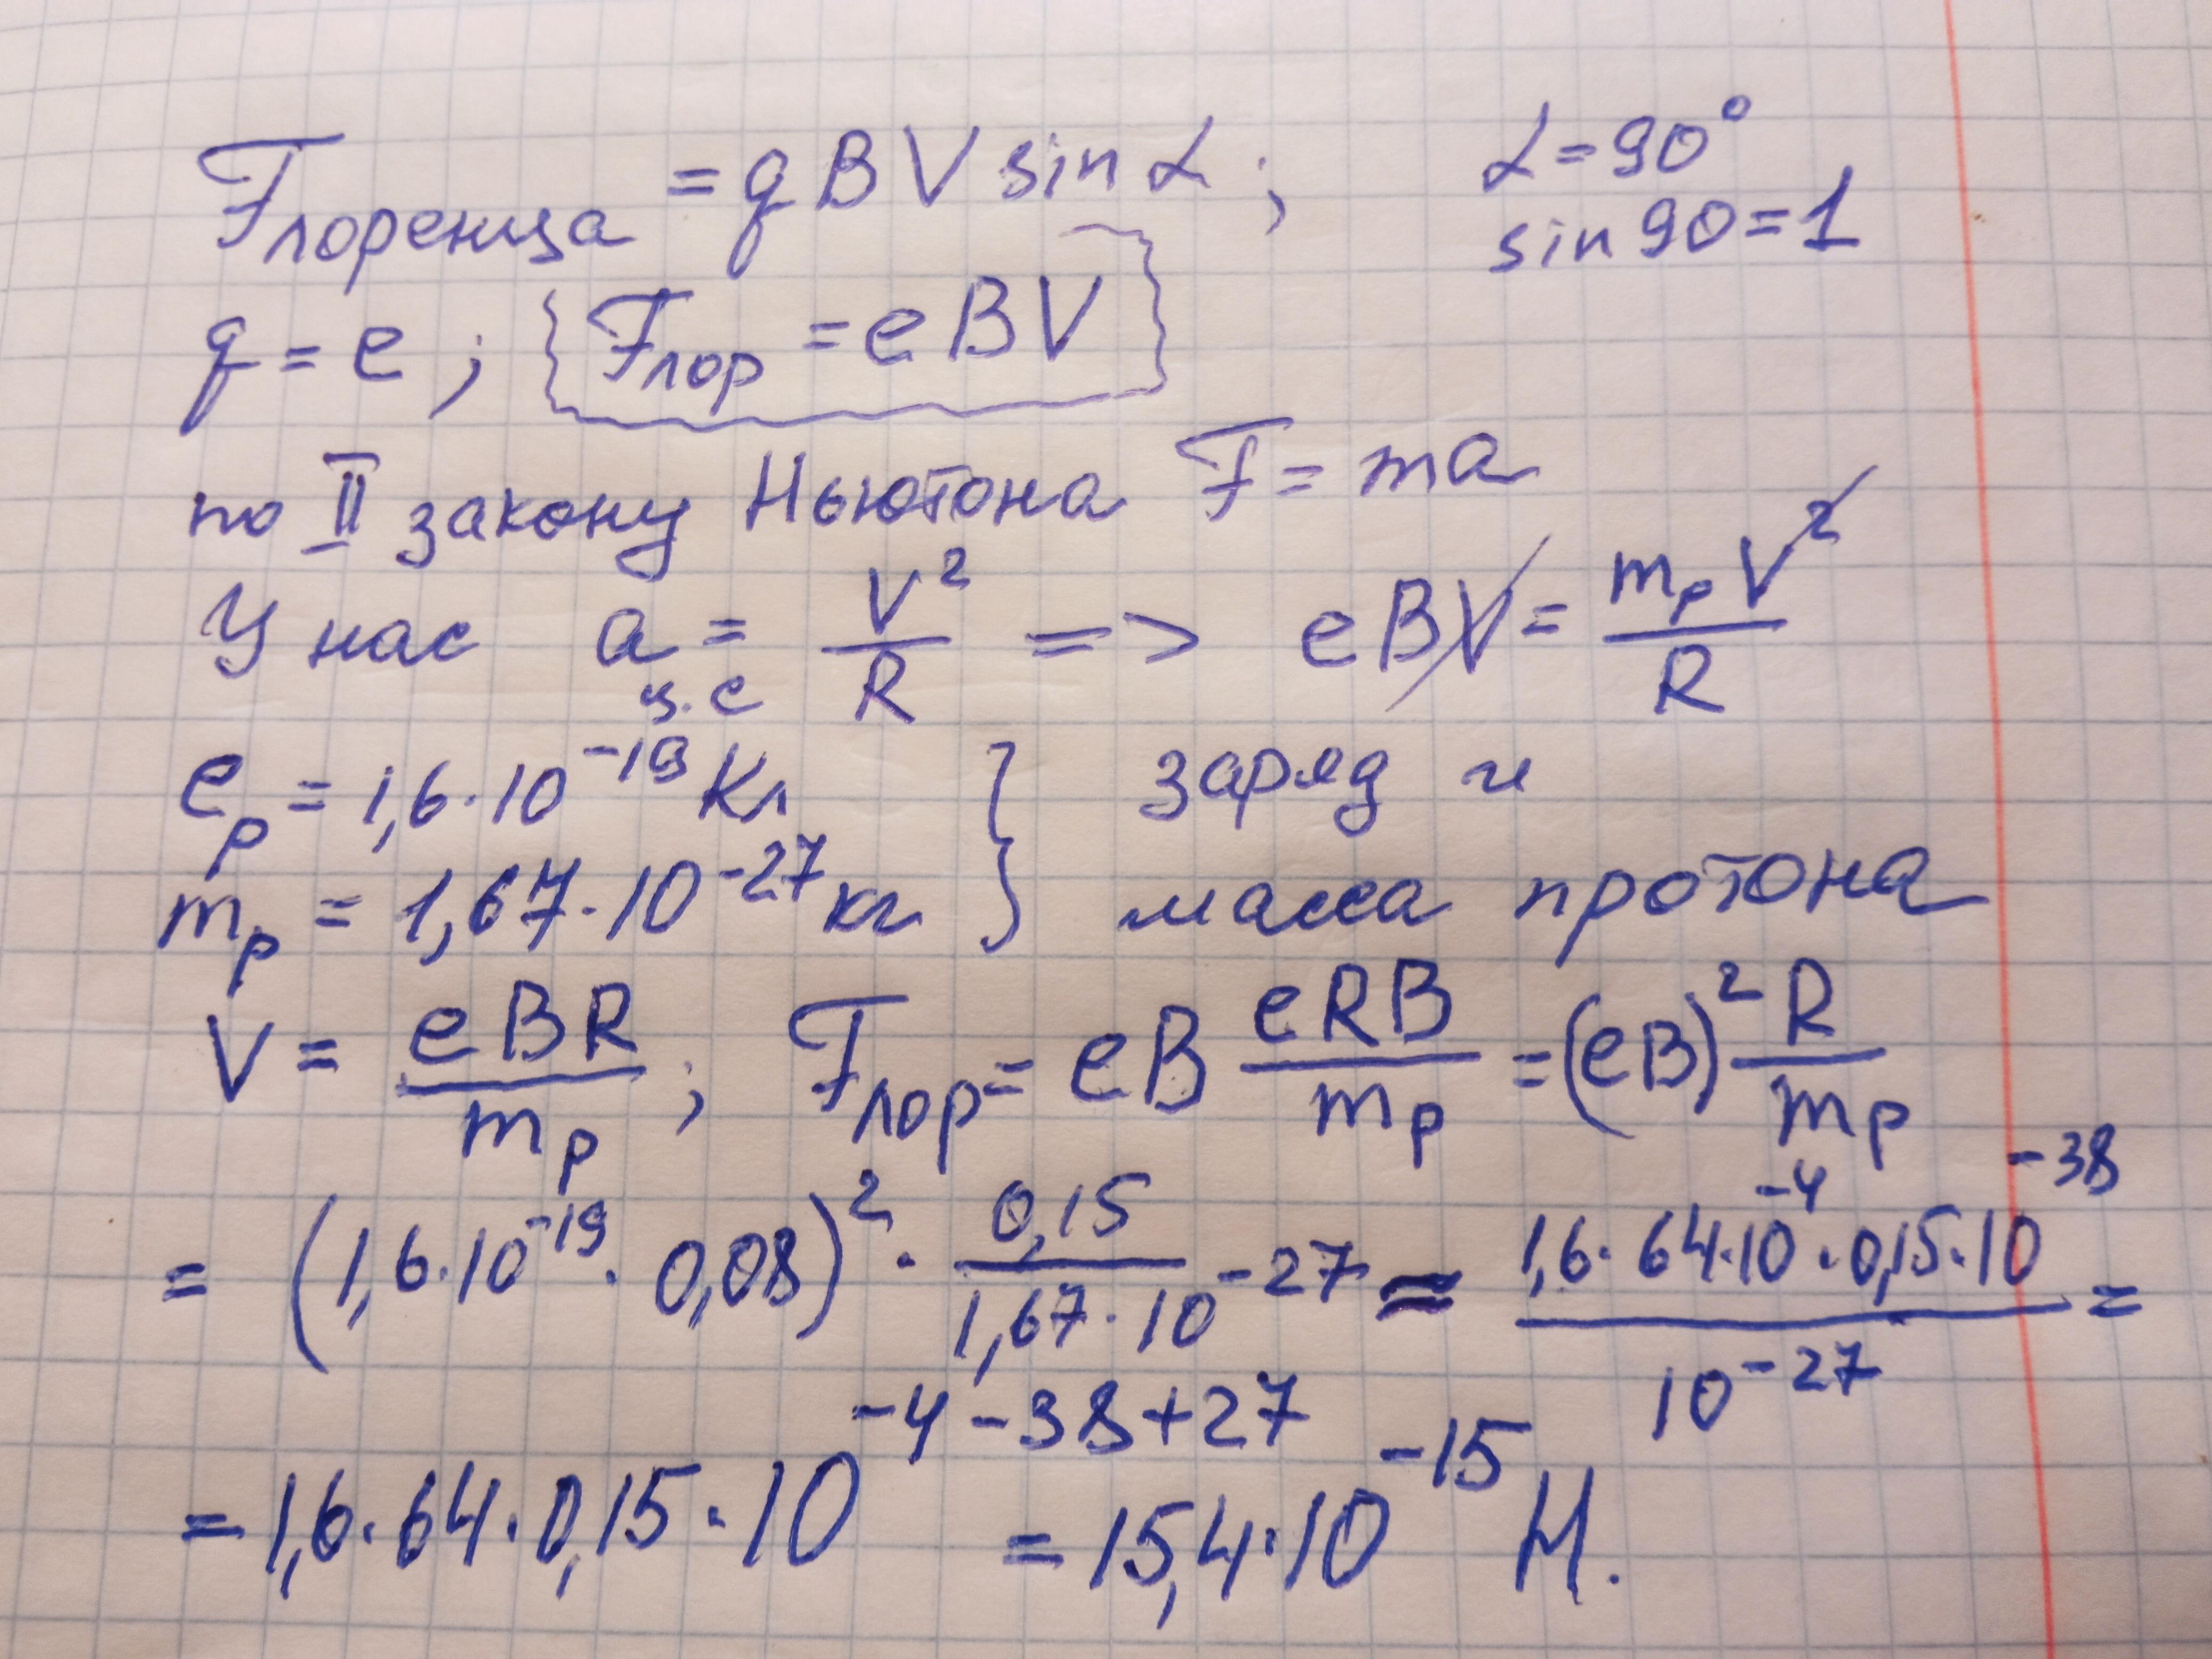 Fлоренца = qBV sin α ; α = 90°
sin 90 = 1
q = e ; Fлор = eBV
по II закону Ньютона F = ma
У нас aц.с = V²/R => eBV = mpV²/R
ep = 1,6·10⁻¹⁹ Кл } заряд и
mp = 1,67·10⁻²⁷ кг } масса протона
V = eBR/mp ; Fлор = eB eRB/mp = (eB)² R/mp
= (1,6·10⁻¹⁹ · 0,08)² · 0,15/1,67·10⁻²⁷ ≈ 1,6·64·10⁻⁴·0,15·10⁻³⁸/10⁻²⁷ =
= 1,6·64·0,15·10⁻⁴⁻³⁸⁺²⁷ = 15,4·10⁻¹⁵ Н.